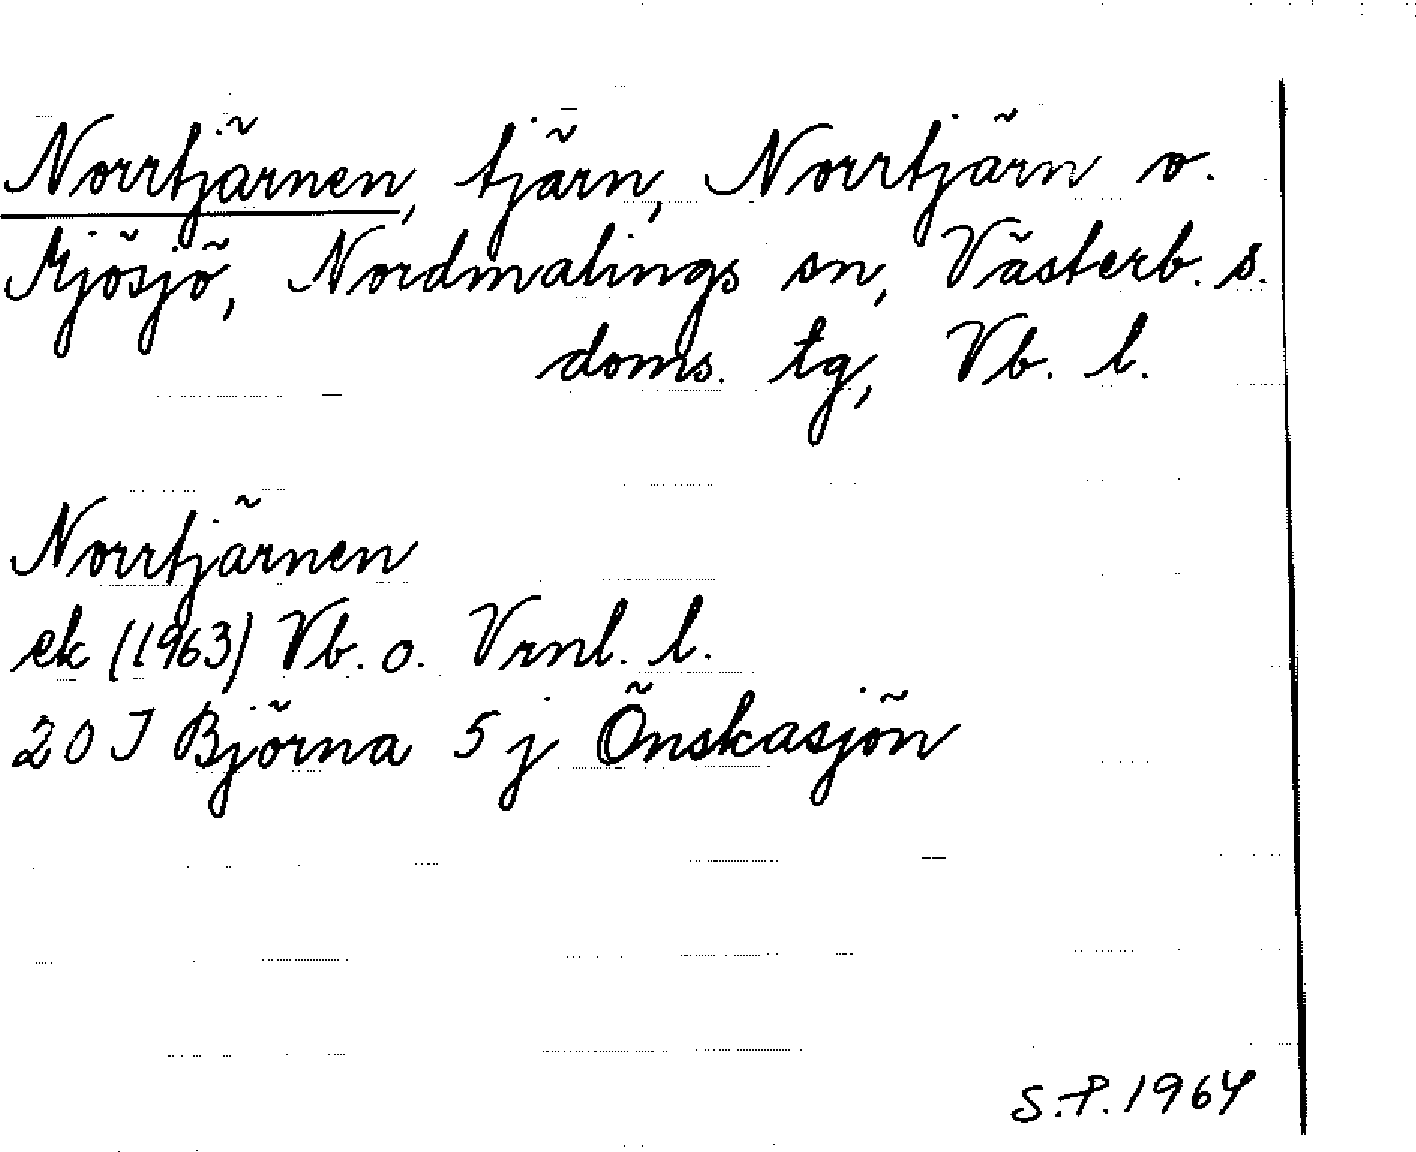 Norrtjärnen, tjärn, Norrtjärn o.
Mjösjö, Nordmalings sn, Västerb. s.
doms. tg, Vb. l.
Norrtjärnen
ek (1963) Vb. o. Vrnl. l.
20 J Björna 5 j Önskasjön
S.P. 1964